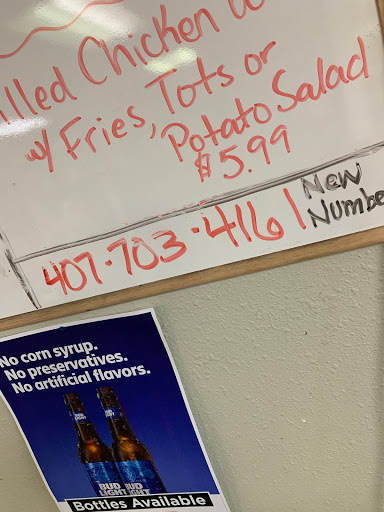 lled Chicken
w/ Fries, Tots or
Potato Salad
$5.99
407-703-4161 New
Numbe
No corn syrup.
No preservatives.
No artificial flavors.
BUD LIGHT
BUD LIGHT
BUD
LIGHT
UD
GHT
Bottles Available